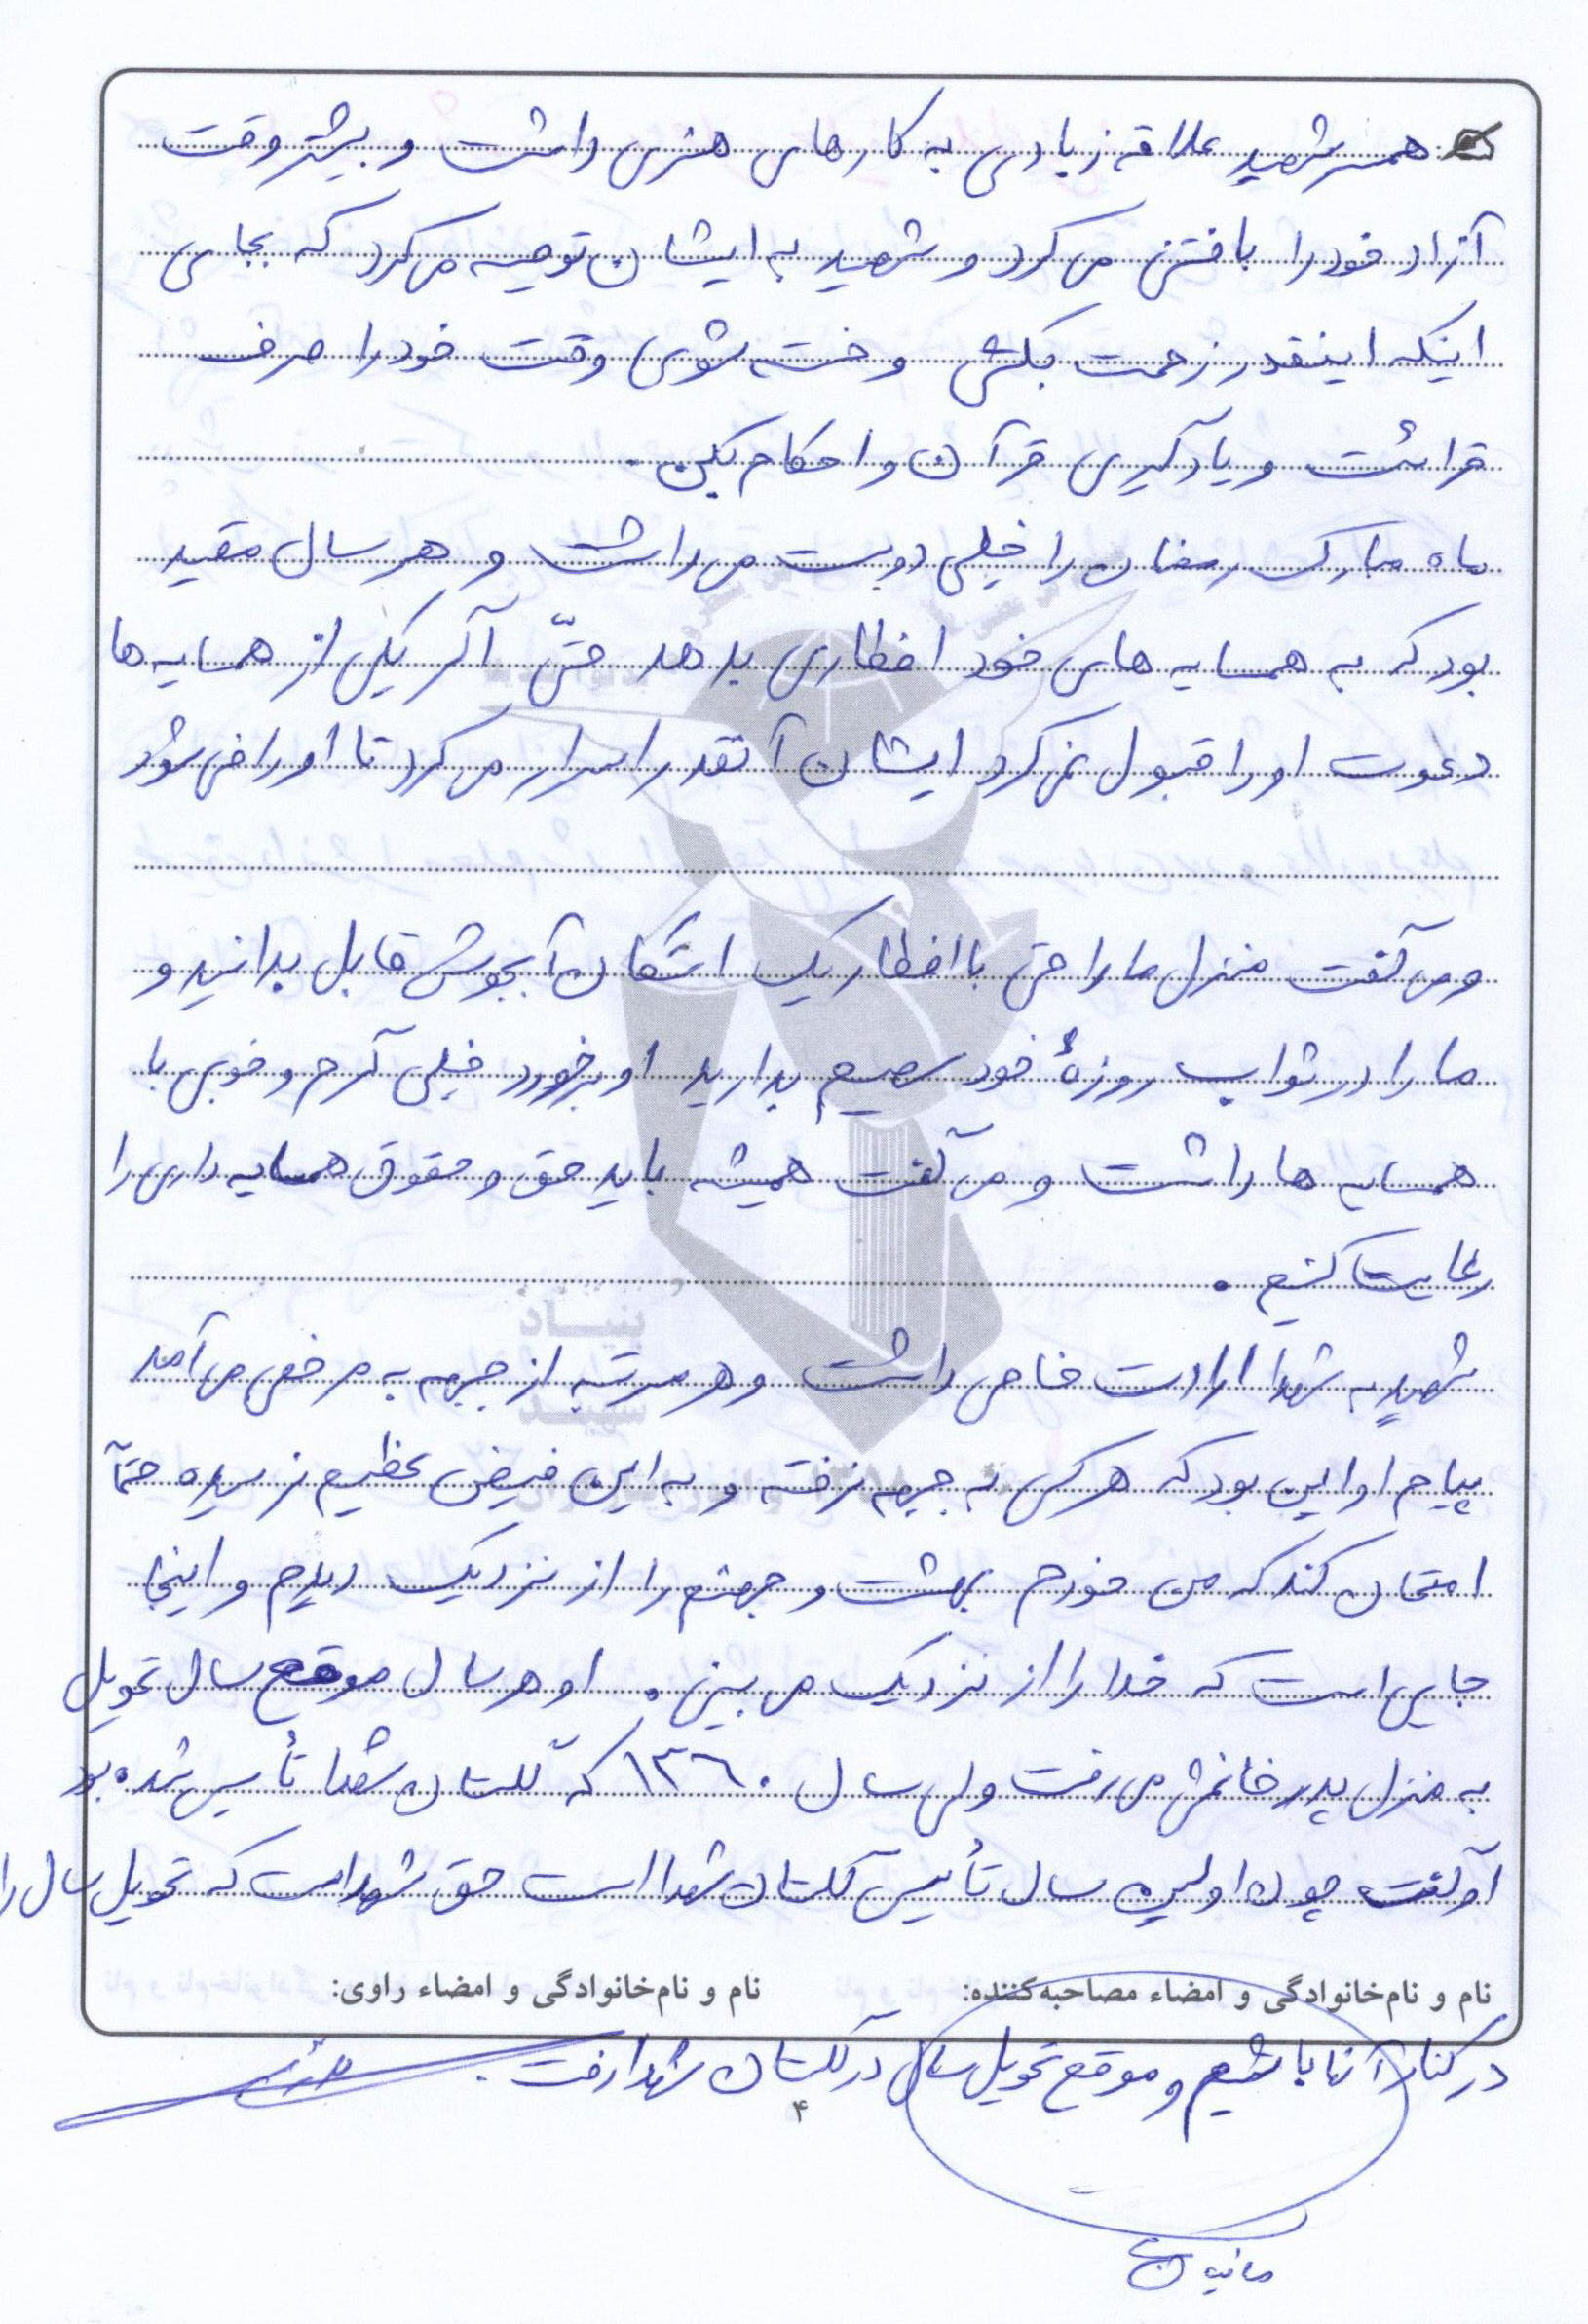 همسر شهید علاقه زیادی به کارهای هنری داشت و بیشتر وقت
آزاد خود را بافتنی می کرد و شهید به ایشان توصیه می کرد که بجای
اینکه اینقدر زحمت بکشی و خسته شوی وقت خود را صرف
قرائت و یادگیری قرآن و احکام بکن.
ماه مبارک رمضان را خیلی دوست می داشت و هر سال مقید
بود که به همسایه های خود افطاری بدهد حتّی اگر یکی از همسایه ها
دعوت او را قبول نمی کرد ایشان آنقدر اسرار می کرد تا او راضی شود
و می گفت منزل ما را حتی با افطار یک استکان آبجوش قابل بدانید و
ما را در ثواب روزهٔ خود سهیم بدارید او برخورد خیلی گرم و خوبی با
همسایه ها داشت و می گفت همیشه باید حق و حقوق همسایه داری را
رعایت کنیم.
شهید به شهدا ارادت خاصی داشت و هر مرتبه از جبهه به مرخصی می آمد
پیام او این بود که هر کس به جبهه نرفته و به این فیض عظیم نرسیده حتماً
امتحان کند که من خودم بهشت و جهنم را از نزدیک دیدم و اینجا
جایی است که خدا را از نزدیک می بینی. او هر سال موقع سال تحویل
به منزل پدر خانمش می رفت ولی سال ۱۳۶۰ که گلستان شهدا تأسیس شده بود
او گفت چون اولین سال تأسیس گلستان شهدا است حق شهداست که تحویل سال را
نام و نام‌خانوادگی و امضاء مصاحبه‌کننده: نام و نام‌خانوادگی و امضاء راوی:
در کنار آنها باشیم و موقع تحویل سال در گلستان شهدا رفت.
۴
بنیاد
شهید